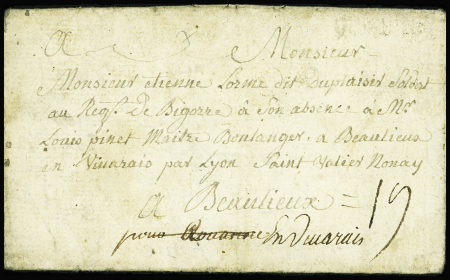 A Monsieur
Monsieur etienne Lorme dit Duplaisir Soldat
au Regt. De Bigorre à Son absence à Mr
Louis pinet Maitre Boulanger, a Beaulieux
en Vivarais par Lyon Saint Valier Nonay
A Beaulieux = 19
pour Rouanne En Vivarais